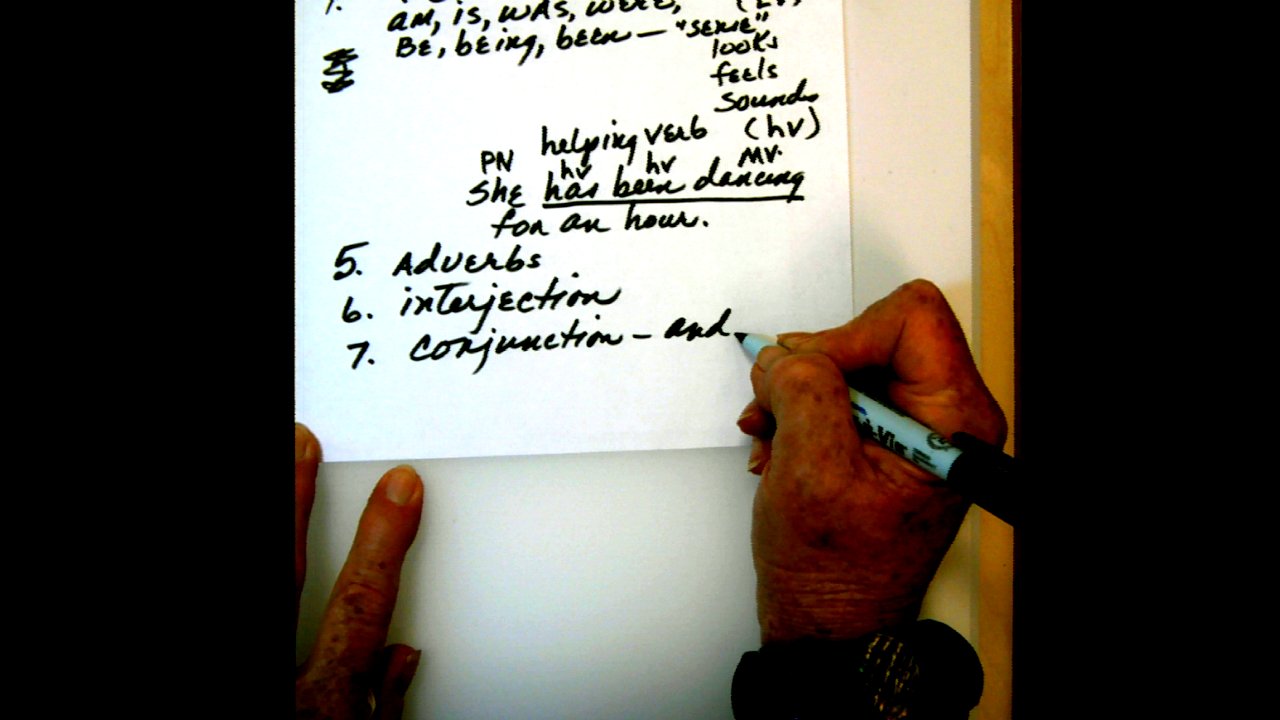 am, is, was, were,
Be, being, been — "sense"
looks
feels
sounds
helping verb (hv)
PN hv hv MV.
She has been dancing
for an hour.
5. Adverbs
6. interjection
7. conjunction - and